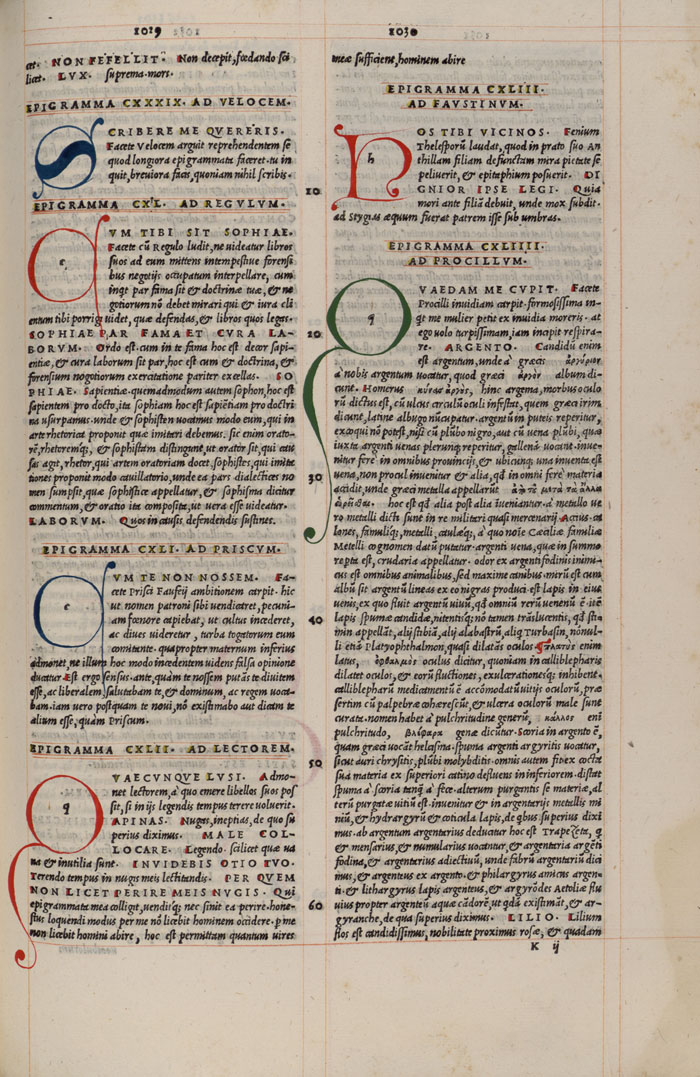 1029
et. NON FEFELLIT. Non decepit, fœdando sci
licet. LVX. suprema mors.
EPIGRAMMA CXXXIX. AD VELOCEM.
SCRIBERE ME QVERERIS.
Facete Velocem arguit reprehendentem se
quod longiora epigrammata faceret. tu in
quit, breuiora facis, quoniam nihil scribis.
EPIGRAMMA CXL. AD REGVLVM.
c VM TIBI SIT SOPHIAE.
Facete cū Regulo ludit, ne uideatur libros
suos ad eum mittens intempestiue forensi
bus negotijs occupatum interpellare, cum
inqt par fama sit & doctrinæ tuæ, & ne
gotiorum nō debet mirari qui & iura cli
entum tibi porrigi uidet, quæ defendas, & libros quos legas.
SOPHIAE PAR FAMA ET CVRA LA-
BORVM. Ordo est. cum in te fama hoc est decor sapi-
entiæ, & cura laborum sit par, hoc est cum & doctrina, &
forensium nogotiorum exercitatione pariter excellas. SO
PHIAE. Sapientiæ quemadmodum autem sophon, hoc est
sapientem pro docto, ita sophiam hoc est sapiētiam pro doctri
na usurpamus. unde & sophisten uocamus modo eum, qui in
arte rhetoricæ proponit quæ imitari debemus. sic enim orato-
rē, rhetoremq;, & sophistam distingunt, ut orator sit, qui cau
sas agit, rhetor, qui artem oratoriam docet. sophistes, qui imita
tiones proponit modo cauillatorio, unde ea pars dialectices no
men sumpsit, quæ sophistice appellatur, & sophisma dicitur
commentum, & oratio ita composita, ut uera esse uideatur.
LABORVM. Quos in causis, defendendis sustines.
EPIGRAMMA CXLI. AD PRISCVM.
c VM TE NON NOSSEM. Fa-
cete Prisci Fauseij ambitionem carpit. hic
ut nomen patroni sibi uendicaret, pecuni-
am fœnore capiebat, ut cultus incederet,
ac diues uideretur, turba togatorum eum
comitante. quapropter maternum inferius
admonet, ne illum hoc modo incedentem uidens falsa opinione
ducatur. Est ergo sensus. ante, quàm te nossem putās te diuitem
esse, ac liberalem, salutabam te, & dominum, ac regem uoca-
bam. iam uero postquam te noui, nō existimabo aut dicam te
alium esse, quàm Priscum.
EPIGRAMMA CXLII. AD LECTOREM.
q VAECVNQVE LVSI. Admo-
net lectorem, a quo emere libellos suos pos
sit, si in ijs legendis tempus terere uoluerit.
APINAS. Nugas, ineptias, de quo su
perius diximus. MALE COL-
LOCARE. Legendo. scilicet quæ ua
na & inutilia sunt. INVIDEBIS OTIO TVO.
Terendo tempus in nugis meis lectitandis. PER QVEM
NON LICET PERIRE MEIS NVGIS. Qui
epigrammata mea colligit, uenditq; nec sinit ea perire. hone-
stius loquendi modus per me nō licebit hominem occidere. p me
non licebit homini abire, hoc est permittam quantum uires
1030
meæ sufficient, hominem abire
EPIGRAMMA CXLIII.
AD FAVSTINVM.
h OS TIBI VICINOS. Fenium
Thelesphorū laudat, quod in prato suo An
thillam filiam defunctam mira pietate se
peliuerit, & epitaphium posuerit. DI
10 GNIOR IPSE LEGI. Quia
mori ante filiā debuit, unde mox subdit.
ad stygias æquum fuerat patrem isse sub umbras.
EPIGRAMMA CXLIIII.
AD PROCILLVM.
q VAEDAM ME CVPIT. Facete
Procilli inuidiam carpit. formosissima in-
qt me mulier petit ex inuidia moreris. at
20 ego uolo turpissimam, iam incipit respira-
re. ARGENTO. Candidū enim
est argentum, unde a᾽ græcis ἄργυρος
a᾽ nobis argentum uocatur, quod græci ἀργὸν album di-
cunt. Homerus κύνας ἀργοὺς, hinc argema, morbus oculo
rū dictus est, cū ulcus circulū oculi infestat, quem græci irim
dicunt, latine albugo nūcupatur. argentū in puteis reperitur,
exœqui nō potest, nisi cū plūbo nigro, aut cū uena plūbi, quæ
iuxta argenti uenas plerunq; reperitur, gallenā uocant. inue-
nitur fere in omnibus prouincijs, & ubicunq; una inuenta est
30 uena, non procul inuenitur & alia, qd in omni fere materia
accidit, unde græci metalla appellarūt
hoc est qd alia post alia iueniantur. a᾽ metallo ue
ro metalli dicti sunt in re militari quasi mercenarij. Accius. ca
lones, famuliq;, metalli, caculæq;, a᾽ quo noīe Cæciliæ familiæ
Metelli cognomen datū putatur. argenti uena, quæ in summo
repta est, crudaria appellatur. odor ex argenti fodinis inimi-
cus est omnibus animalibus, sed maxime canibus. mirū est cum
albū sit argentū lineas ex eo nigras produci. est lapis in eius
uenis, ex quo fluit argentū uiuū, qd omniū rerū uenenū ē. itē
40 lapis spumæ candidæ, nitentisq; nō tamen traslucentis, qd sti-
min appellāt, alij stibiā, alij alabastrū, aliq; Turbasin, nonul-
li etiā Platyophthalmon, quasi dilatās oculos πλατὺς enim
latus, ὀφθαλμὸς oculus dicitur, quoniam in calliblepharis
dilatet oculos, & eorū fluctiones, exulcerationesq; inhibent.
calliblepharū medicamentū ē accōmodatū uitijs oculorū, præ
sertim cū palpebræ cohærescūt, & ulcera oculorū male sunt
curata. nomen habet a᾽ pulchritudine generū, κάλλος enī
pulchritudo, βλέφαρα genæ dicūtur. Scoria in argento ē,
quam græci uocāt helcisma. spuma argenti argyritis uocatur,
50 sicut auri chrysitis, plūbi molybditis. omnis autem fit ex cocta
sua materia ex superiori catino defluens in inferiorem. distat
spuma a᾽ scoria tanq̄ a᾽ fæce. alterum purgantis se materiæ, al
terū purgatæ uitiū est. inuenitur & in argentarijs metallis mi
niū, & hydrargyrū & coticula lapis, de qbus superius dixi
mus. ab argentum argentarius deducitur hoc est Trapezeta, q
& mensarius, & numularius uocantur, & argentaria argēti
fodina, & argentarius adiectiuū, unde fabrū argentariū dici
mus, & argenteus ex argento. & philargyrus amicus argen-
ti. & lithargyrus lapis argenteus, & argyrōdes Aetoliæ flu
60 uius propter argenteū aquæ cādorē, ut qdā existimāt, & ar-
gyranche, de qua superius diximus. LILIO. Lilium
flos est candidissimus, nobilitate proximus rosæ, & quodam
K ij